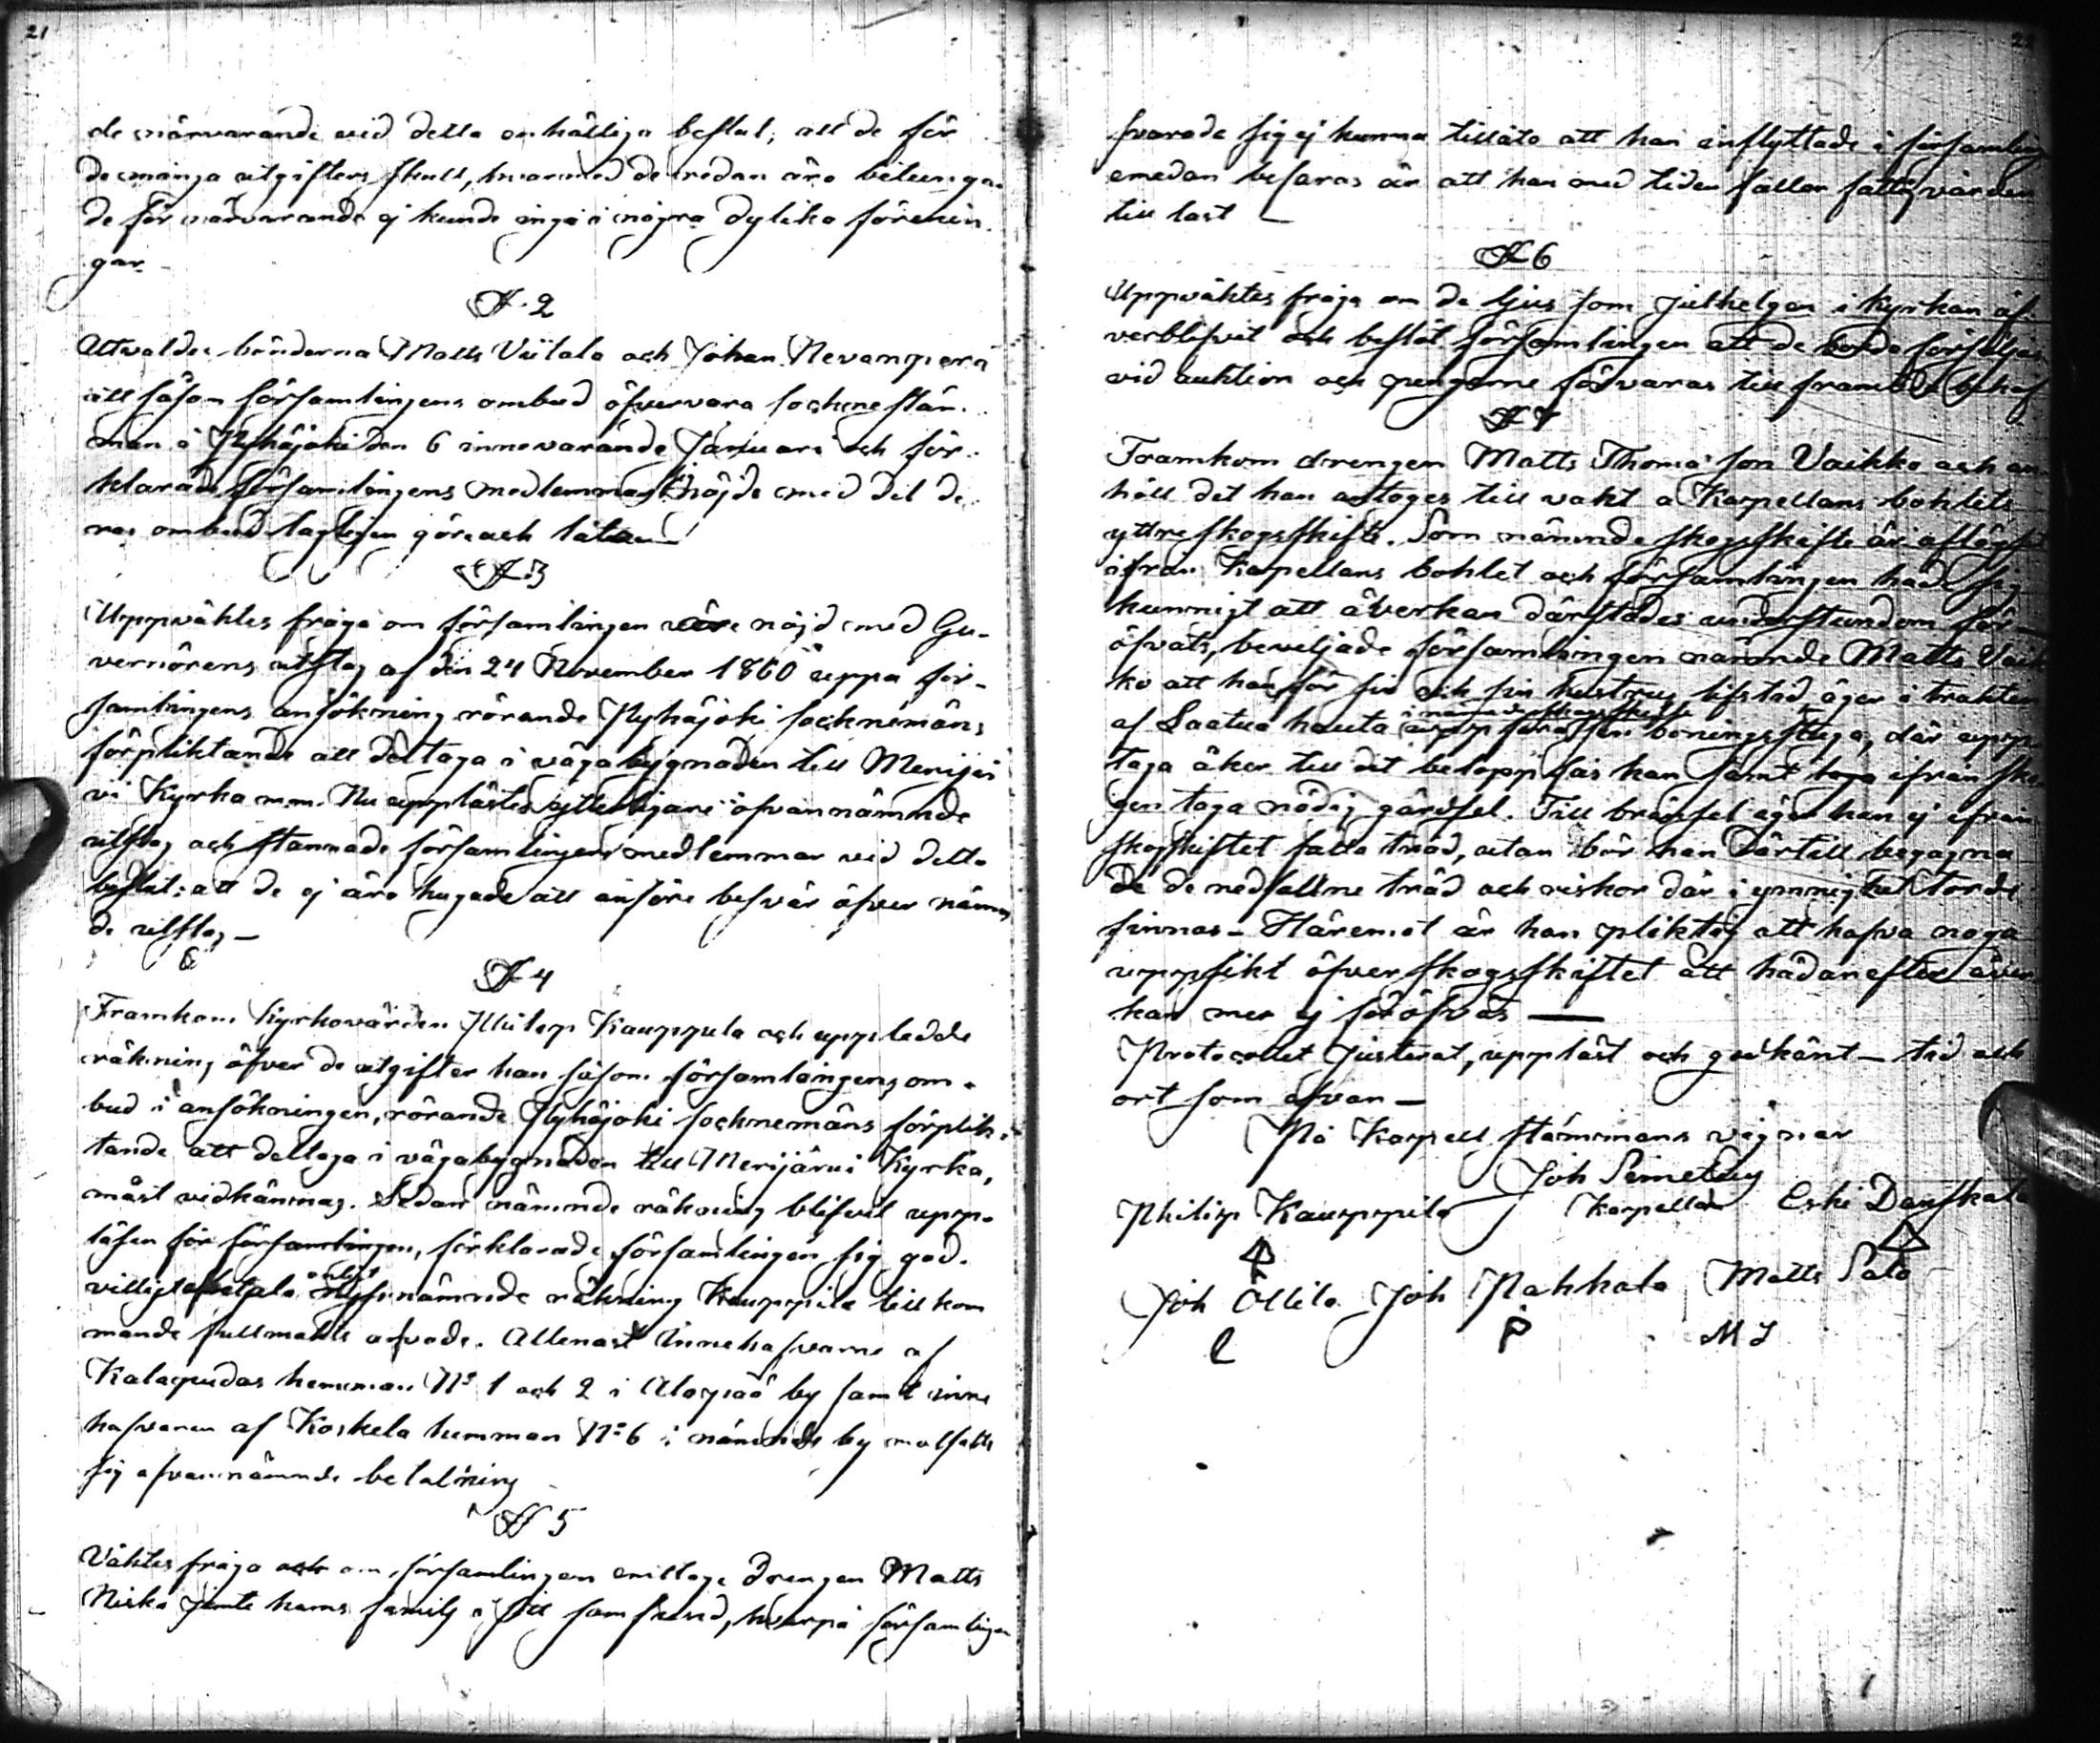 21
de närvarande vid detta enhälliga beslut; att de för
de många utgifters skull, hvarmed de redan äro betunga-
de för närvarande ej kunde ingå i några dylika förenin-
gar.
§ 2
Utvaldes bönderna Matts Viitala och Johan Nevanperä
att såsom församlingens ombud öfvervara sockenestäm-
man i Pyhäjoki den 6 innevarande Januari och för-
klarade församlingens medlemmar sig nöjde med det de-
ras ombud lagligen göra och låta
§ 3
Uppväktes fråga om församlingen vore nöjd med Gu-
vernörens utslag af den 24 November 1860 uppå för-
samlingens ansökning rörande Pyhäjoki socknemäns
förpliktande att deltaga i vägabygnaden till Merijär-
vi Kyrka m.m. Nu upplästes ytterligare ofvannämnde
utslag och stannade församlingens medlemmar vid detta
beslut: att de ej äro hugade att anföra besvär öfver nämn-
de utslag —
§ 4
Framkom Kyrkovärden Philip Kauppila och uppledde
räkning öfver de utgifter han såsom församlingens om-
bud i ansökningen, rörande Pyhäjoki socknemäns förplik-
tande att deltaga i vägabygnaden till Merijärvi Kyrka,
måst vidkännas. Sedan nämnde räkning blifvit upp-
läsen för församlingen, förklarade församlingen sig god-
villigt betala enligt nyssnämnde räkning Kauppila tillkom
mande fullmakts arvode. Allenast Innehafvarne af
Kalapudas hemman No 1 och 2 i Alapää by samt inne
hafvaren af Koskela hemman No 6 i nämnde by motsatte
sig ofvannämnde betalning
§ 5
Väktes fråga om församlingen emottoge drengen Matts
Niska jemte hans familj i sitt samfund, hvarpå församlingen
svarade sig ej kunna tillåta att han inflyttade i församling
emedan befaras är att han med tiden faller fattigvården
till last —
§ 6
Uppväktes fråga om de ljus som Julhelgen i Kyrkan öf-
verblefvit och beslöt församlingen att de borde försäljas
vid auktion och pengarne förvaras till framtida behof
§ 7
Framkom drengen Matts Thomasson Vaikko och an
höll det han antoges till vakt å Kapellans bohlets
yttre skogsskifte. Som nämnde skogsskifte är aflägset
ifrån Kapellans bohlet och församlingen hade sig
kunnigt att åverkan därstädes understundom för-
öfvats, beviljade församlingen nämnde Matts Vaik
ko att han för sin och sin hustrus lifstid äger i trakten
af Laatua hauta i nämnde skogsskifte uppföra sin boningsstuga, där upp
taga åker till det belopp han samt taga ifrån sko
gen taga nödig gärdsel. Till bränsel äger han ej ifrån
skogsskiftet fälla träd, utan bör han därtill begagna
de de nedfallne träd och riskor där i ymnighet torde
finnas — Häremot är han pliktig att hafva noga
uppsikt öfver skogsskiftet att hädanefter åver
kan mer ej föröfvas —
Protocollet Justerat, uppläst och godkänt — tid och
ort som ofvan —
På Kapell stämmans vägnar
Joh Simelius
Kapellan
Philip Kauppila Eski Danskala
Joh Ollila Joh Pahkala Matts Salo
P M S